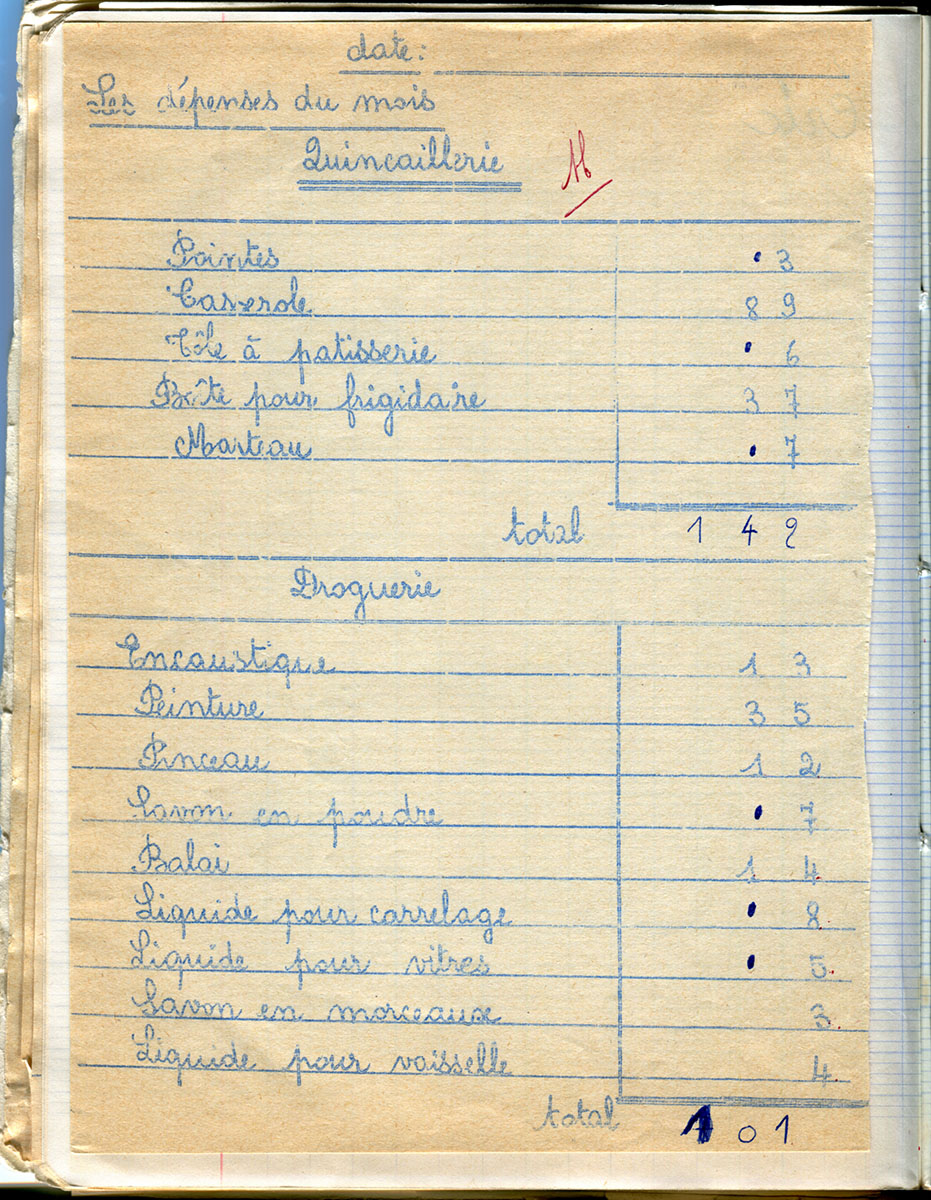 date:
Les dépenses du mois
Quincaillerie
Pointes 3
Casserole 89
Tôle à patisserie 6
Boîte pour frigidaire 37
Marteau 7
total 142
Droguerie
Encaustique 13
Peinture 35
Pinceau 12
Savon en poudre 7
Balai 14
Liquide pour carrelage 8
Liquide pour vitres 5
Savon en morceaux 3
Liquide pour vaisselle 4
total 101